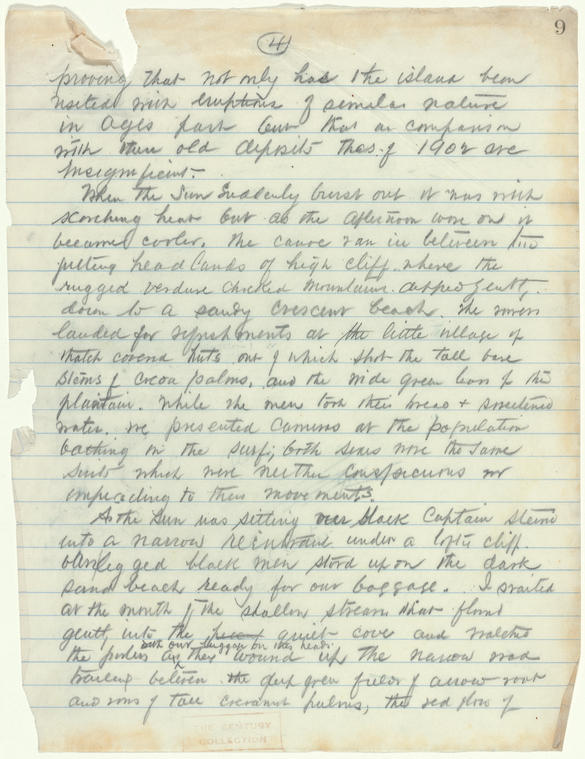 9
4
proving that not only has the island been
visited with eruptions of similar nature
in ages past but that in comparison
with these old deposits those of 1902 are
insignificant.
When the sun suddenly burst out it was with
scorching heat but as the afternoon wore on it
became cooler. The canoe ran in between two
jutting headlands of high cliff where the
rugged verdure mountains gently
down to a sandy crescent beach. The rowers
landed for refreshments at the little village of
thatch covered huts out of which shot the tall bare
stems of cocoa palms, and the wide green leaves of the
plantain. While the men took their bread & sweetened
water, we presented cameras at the population
bathing in the surf; both sexes wore the same
suits which were neither conspicuous nor
impeading to their movements.
As the sun was setting black Captain steered
into a narrow under a lofty cliff.
barelegged black men stood up on the dark
sand beach ready for our baggage. I waited
at the mouth of the shallow stream that flowed
gently into the quiet cove and watched
with our luggage on their heads
the porters as they wound up the narrow road
between the deep green fields of arrow root
and rows of tall cocoanut palms, the red glow of
THE CENTURY
COLLECTION